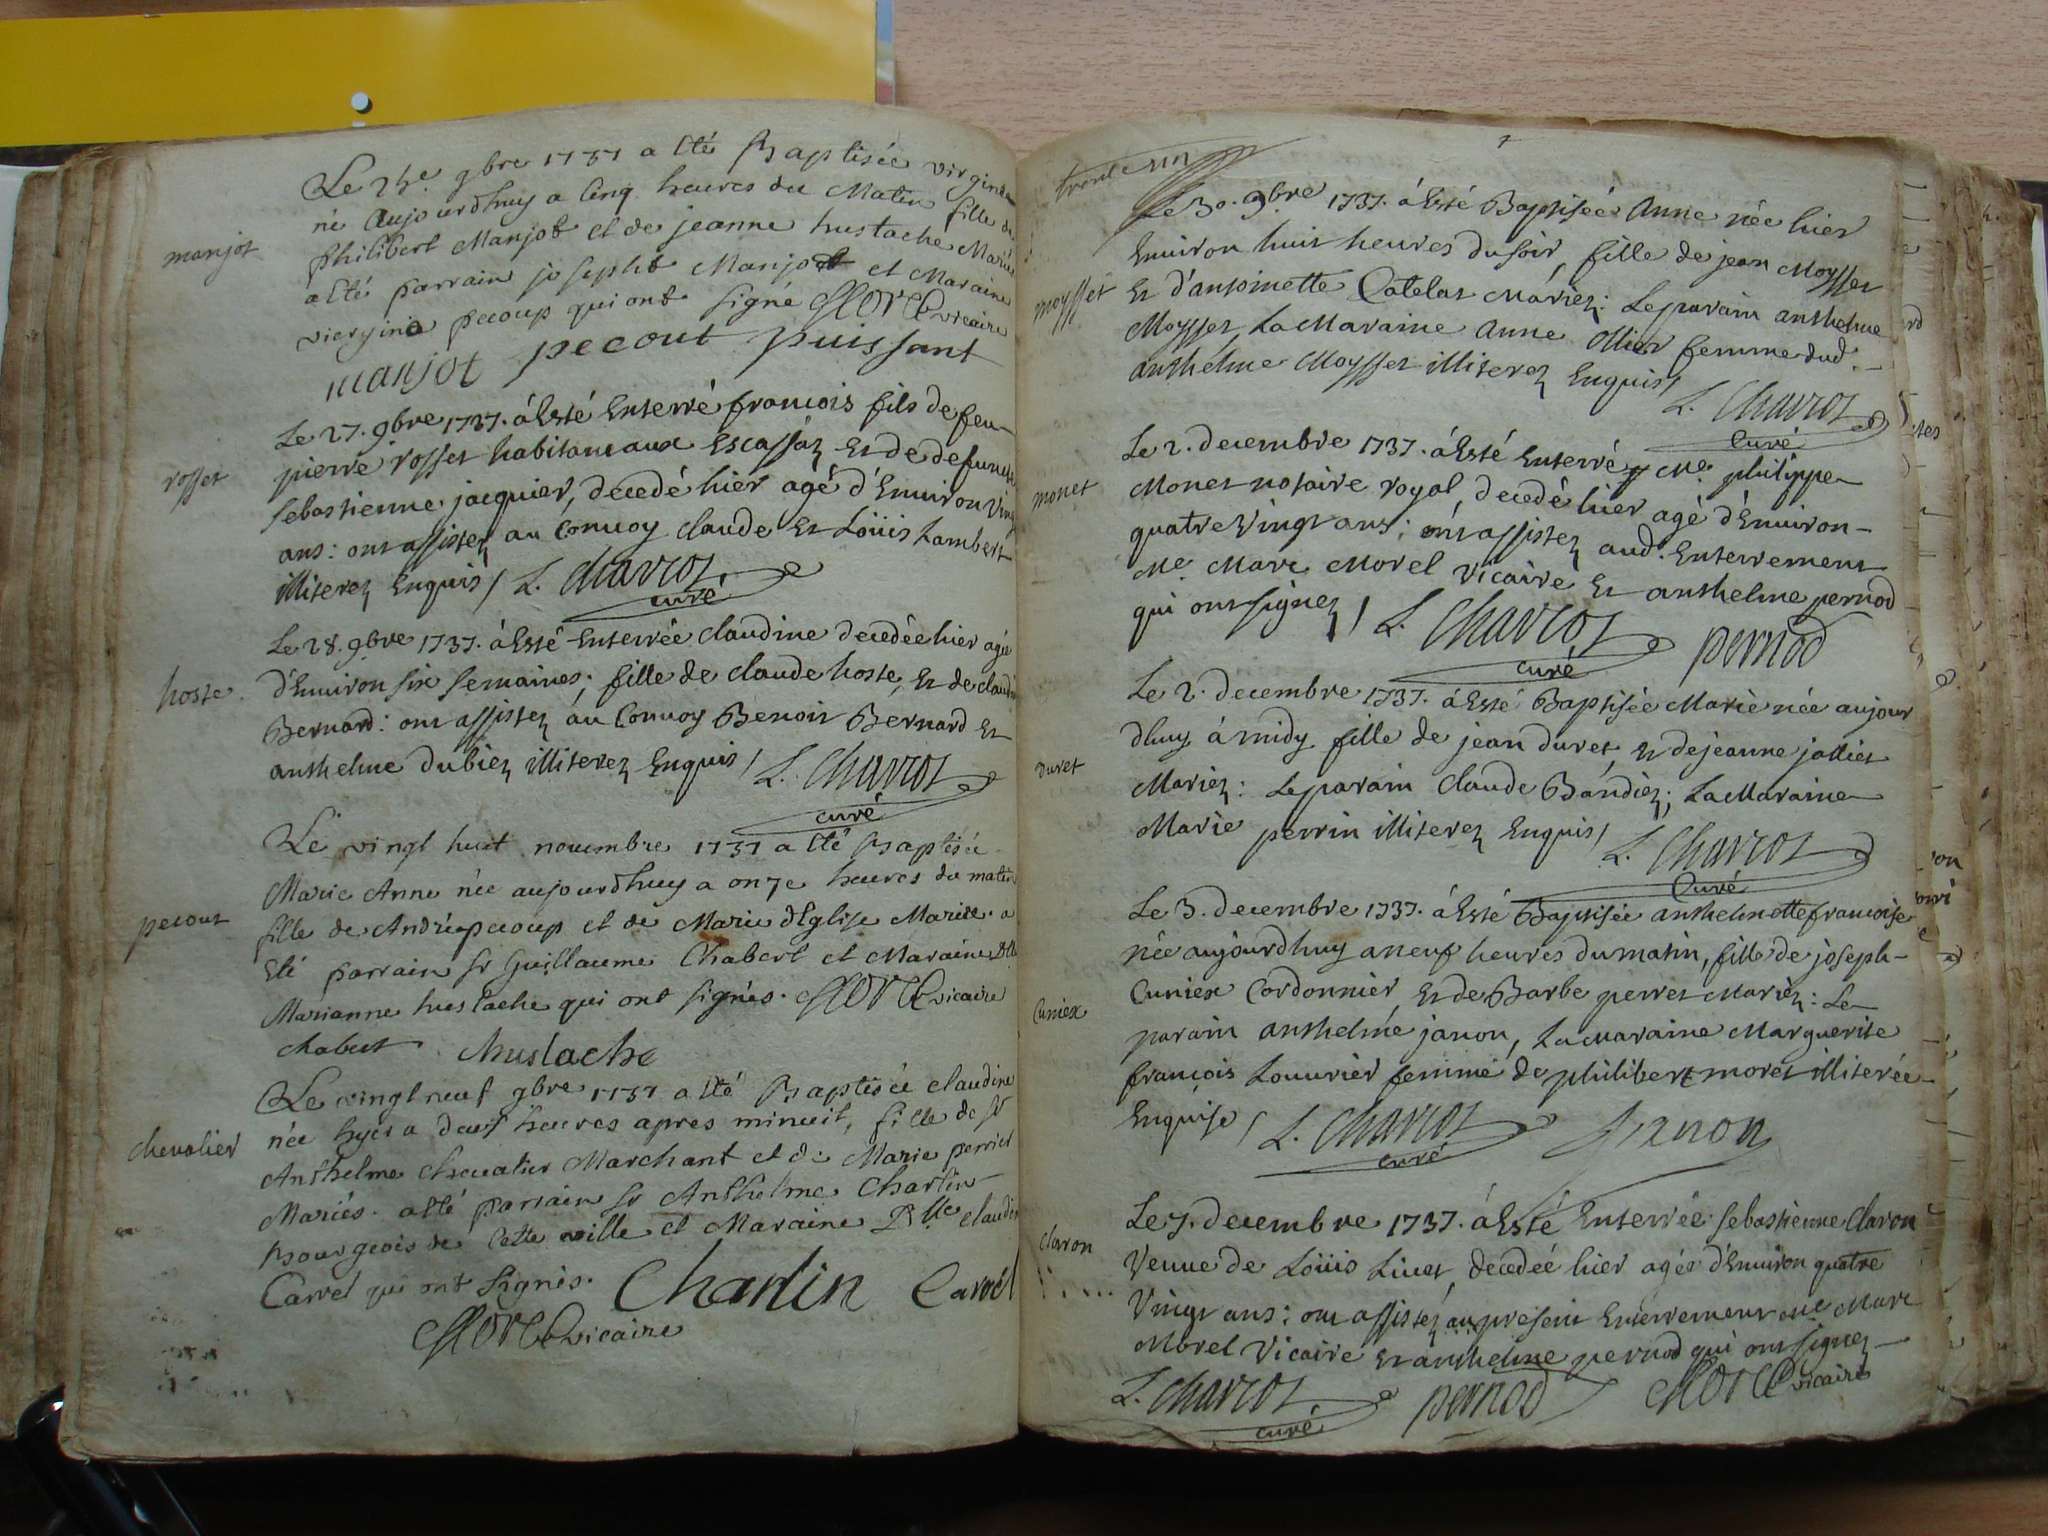 manjot
Le 24e. 9bre 1737 a Eté Baptisée virginie
née Aujourdhuy a Cinq heures du Matin fille de
philibert Manjot et de jeanne hustache Mariés
a Eté parrain joseph Manjot et Maraine
viergine pecoup qui ont signé Morel vicaire
manjot pecout puissant
rosset
Le 27. 9bre 1737. á Esté Enterré francois fils de feu
pierre rosset habitant aux Escassáz Et de defuncte
sebastienne jacquier, decedé hier agé d'Environ vingt
ans: ont assistez au Convoy claude Et Loüis Lambert
illiterez Enquis / L. Charcot
curé
hoste.
Le 28. 9bre 1737. á Esté Enterrée claudine decedée hier agée
d'Environ six semaines, fille de claude hoste, Et de claudine
Bernard: ont assistez áu Convoy Benoit Bernard Et
anthelme dubiez illiterez Enquis / L. Charcot
curé
pecout
Le vingt huit novembre 1737 a Eté Baptisée
Marie Anne née aujourdhuy a onze heures du matin
fille de André pecoup et de Marie dEglise Mariés. a
Eté parrain sr Guillaume Chabert et Maraine Dlle
Marianne hustache qui ont signés. Morel vicaire
chabert hustache
chevalier
Le vingt neuf 9bre 1737 a Eté Baptisée claudine
née hyer a deux heures apres minuit, fille de sr
Anthelme chevalier Marchant et de Marie perrier
Mariés. a Eté parrain sr Anthelme Charlin
Bourgeois de Cette ville et Maraine Dlle claudine
Carrel qui ont signés. Charlin Carrel
Morel vicaire
trente un
Le 30. 9bre 1737. á Esté Baptisée Anne née hier
Environ huit heures du soir, fille de jean Moysset
moysset
Et d'antoinette Catelat Máriez: Le parain anthelme
Moysset, La Maraine Anne Ollier femme dud.
anthelme Moysset illiterez Enquis /
L. Charcot
Curé
Le 2. decembre 1737. á Esté Enterré Me. philippe
monet
Monet notaire royal, decedé hier agé d'Environ
quatre Vingt ans: ónt assistez aud. Enterrement
Me. Marc Morel Vicaire Et anthelme pernod
qui ont signez / L. Charcot pernod
curé
Le 2. decembre 1737. á Esté Baptisée Marie née aujour
dhuy á midy fille de jean duret, Et de jeanne jolliet
duret
Mariez: Le parain Claude Bándiez, La Maraine
Marie perrin illiterez Enquis /
L. Charcot
Curé
Le 3. decembre 1737. á Esté Baptisée anthelmette francoise
née aujourdhuy a neuf heures du matin, fille de joseph
Cuniex
Cuniex Cordonnier Et de Barbe perret Mariez: Le
parain anthelme janon, La maraine Marguerite
francois Louvrier femme de philibert moret illiterée
Enquise / L. Charcot Janon
curé
Le 7. decembre 1737. á Esté Enterrée sebastienne Claron
claron
Veuve de Loüis Livet, decedeé hier agée d'Environ quatre
Vingt ans: ont assistez au present Enterrement Me. Marc
Morel Vicaire Et anthelme pernod qui ont signez
L. Charcot pernod Morel vicaire
curé